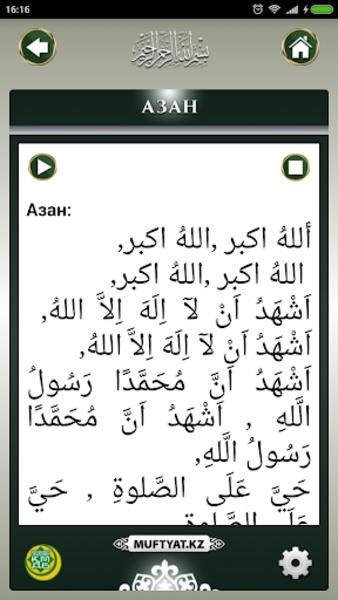 16:16
بسم الله الرحمن الرحيم
АЗАН
Азан:
أَللهُ اكبر ,اللهُ اكبر,
اللهُ اكبر ,اللهُ اكبر,
اَشْهَدُ اَنْ لآ اِلَهَ اِلاَّ اللهُ,
اَشْهَدُ اَنْ لآ اِلَهَ اِلاَّ اللهُ,
اَشْهَدُ اَنَّ مُحَمَّدًا رَسُولُ
اللَّهِ , اَشْهَدُ اَنَّ مُحَمَّدًا
رَسُولُ اللَّهِ,
حَيَّ عَلَى الصَّلوةِ , حَيَّ
عَلَى الصَّلوةِ
MUFTYAT.KZ
ҚМДБ